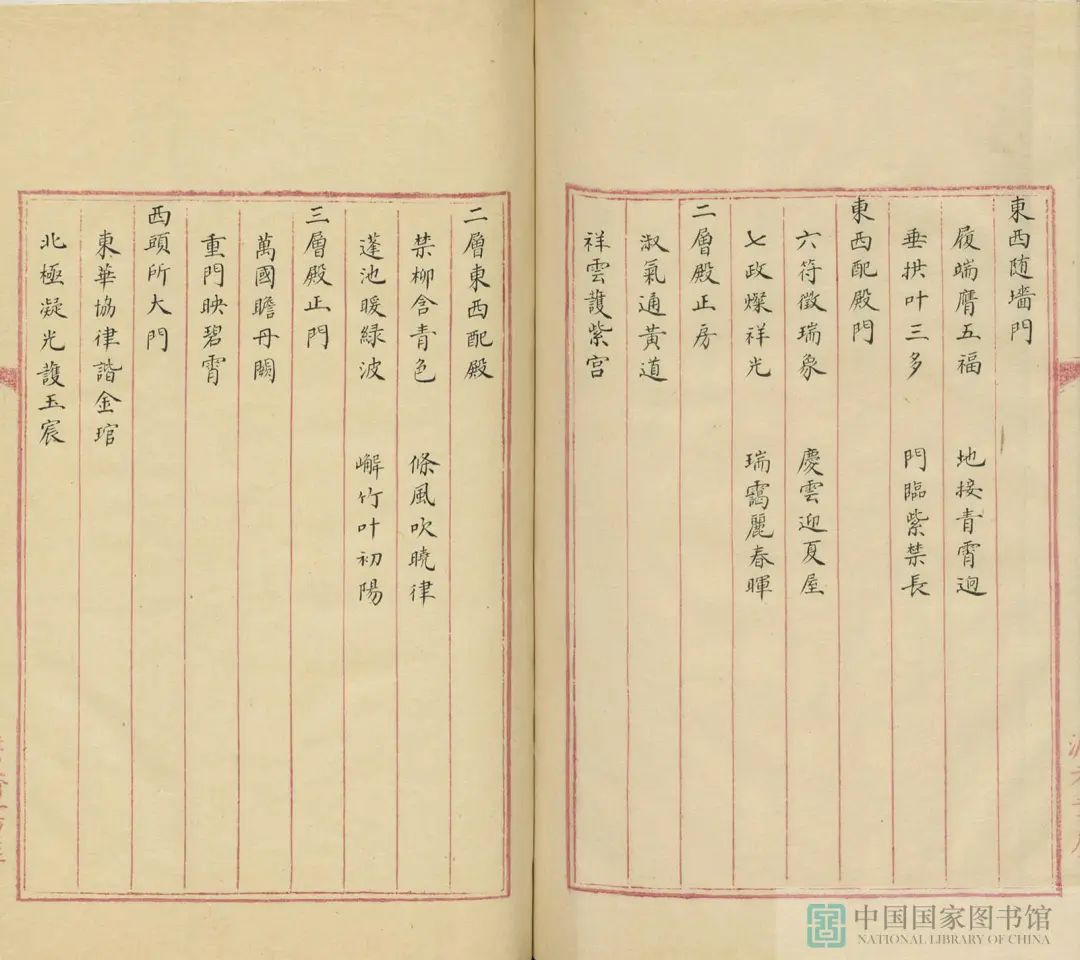 東西随墻門
履端膺五福　地接青霄迥
垂拱叶三多　門臨紫禁長
東西配殿門
六符徵瑞象　慶雲迎夏屋
七政燦祥光　瑞靄麗春暉
二層殿正房
淑氣通黃道
祥雲護紫宮
二層東西配殿
禁柳含青色　條風吹曉律
蓬池暖綠波　嶰竹叶初陽
三層殿正門
萬國瞻丹闕
重門映碧霄
西頭所大門
東華協律諧金琯
北極凝光護玉宸
中国国家图书馆
NATIONAL LIBRARY OF CHINA